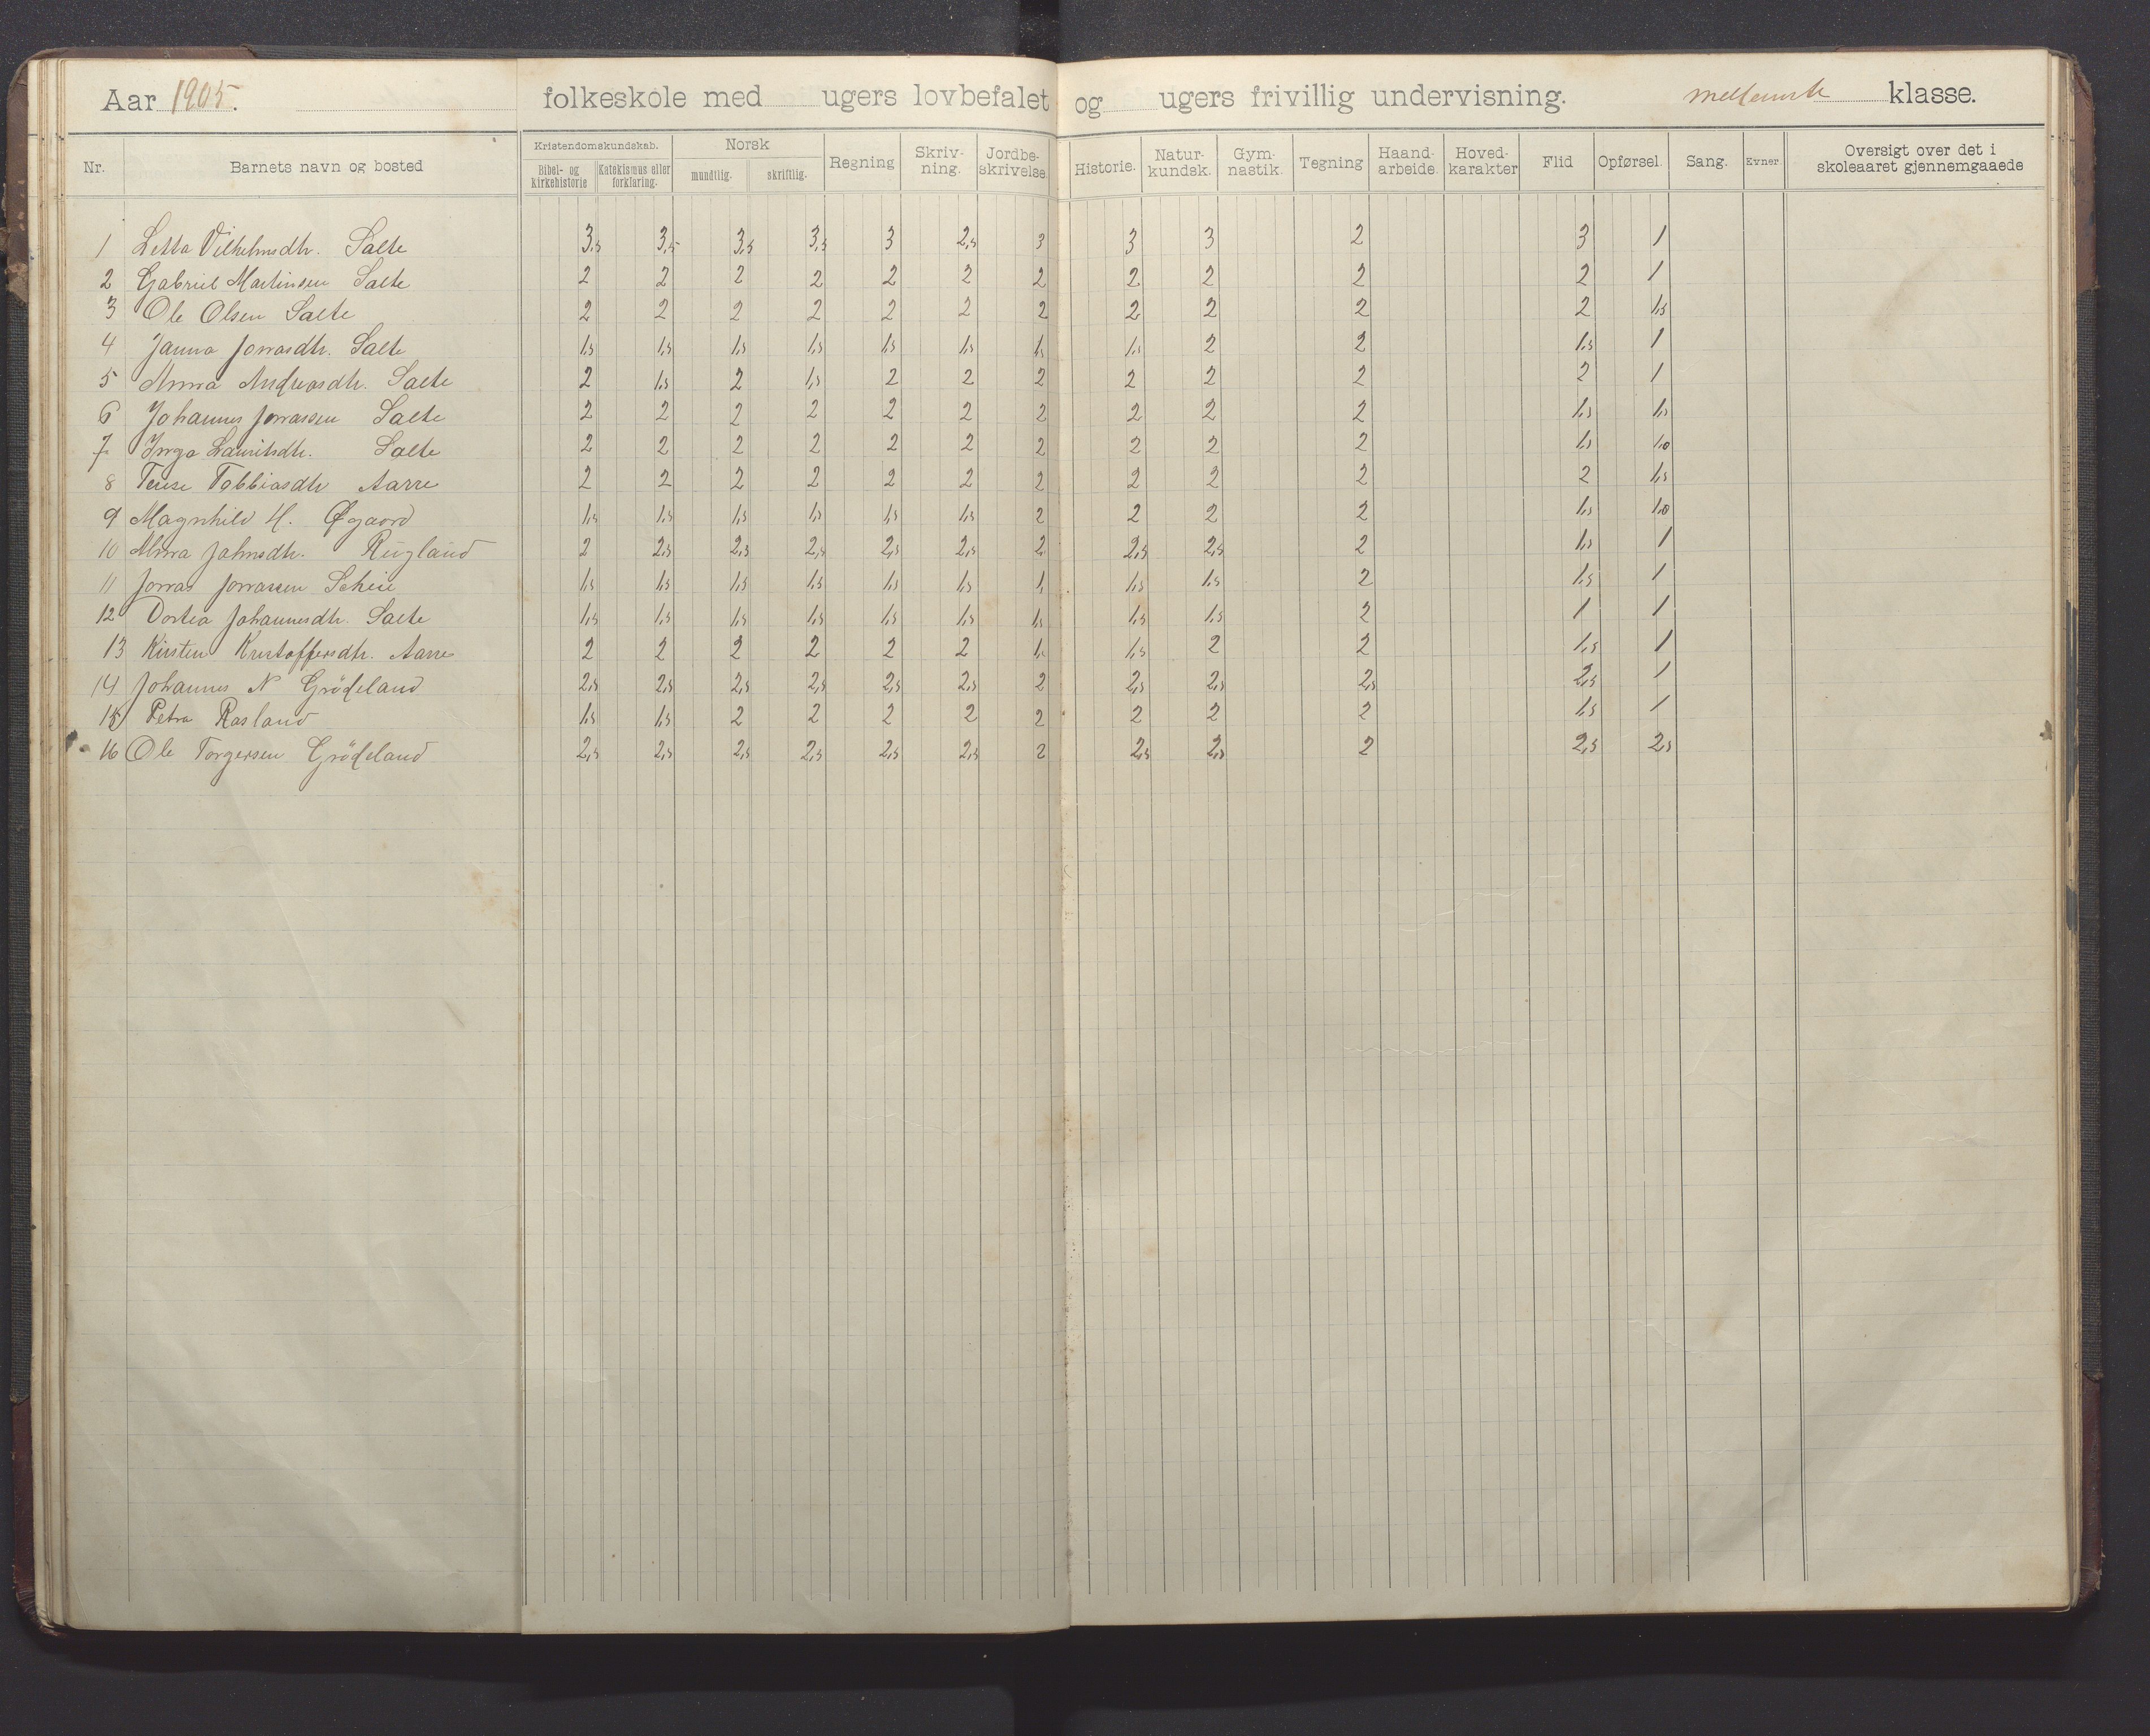 Aar 1905. folkeskole med ugers lovbefalet og ugers frivillig undervisning. mellemste klasse.
Nr. Barnets navn og bosted Kristendomskundskab. Bibel- og kirkehistorie Katekismus eller forklaring. Norsk mundtlig. skriftlig. Regning Skriv-ning. Jordbe-skrivelse. Historie. Natur-kundsk. Gym-nastik. Tegning Haand-arbeide. Hoved-karakter Flid Opførsel. Sang. Evner. Oversigt over det i skoleaaret gjennemgaaede
1 Letta Vilhelmsdtr. Salte 3,5 3,5 3,5 3,5 3 2,5 3 3 3 2 3 1
2 Gabriel Martinsen Salte 2 2 2 2 2 2 2 2 2 2 2 1
3 Ole Olsen Salte 2 2 2 2 2 2 2 2 2 2 2 1,5
4 Janna Jonasdtr. Salte 1,5 1,5 1,5 1,5 1,5 1,5 1, 1,5 2 2 1,5 1
5 Anna Andreasdtr. Salte 2 1,5 2 1,5 2 2 2 2 2 2 2 1
6 Johannes Jonassen Salte 2 2 2 2 2 2 2 2 2 2 1,5 1,5
7 Inga Lauritsdtr. Salte 2 2 2 2 2 2 2 2 2 2 1,5 1,0
8 Terese Tobbiasdtr Aarre 2 2 2 2 2 2 2 2 2 2 2 1,5
9 Magnhild H. Øgaard 1,5 1,5 1,5 1,5 1,5 1,5 2 2 2 2 1,5 1,0
10 Anna Johnsdtr. Rugland 2 2,5 2,5 2,5 2,5 2,5 2 2,5 2,5 2 1,5 1
11 Jonas Jonassen Scheie 1,5 1,5 1,5 1,5 1,5 1,5 1, 1,5 1,5 2 1,5 1
12 Dortea Johannesdtr. Salte 1,5 1,5 1,5 1,5 1,5 1,5 1,5 1,5 1,5 2 1 1
13 Kirsten Kristoffersdtr. Aarre 2 2 2 2 2 2 1, 1,5 2 2 1,5 1
14 Johannes N Grödeland 2,5 2,5 2,5 2,5 2,5 2,5 2 2,5 2,5 2,5 2,5 1
15 Petra Rasland 1,5 1,5 2 2 2 2 2 2 2 2 1,5 1
16 Ole Torgersen Grödeland 2,5 2,5 2,5 2,5 2,5 2,5 2 2,5 2,5 2 2,5 2,5